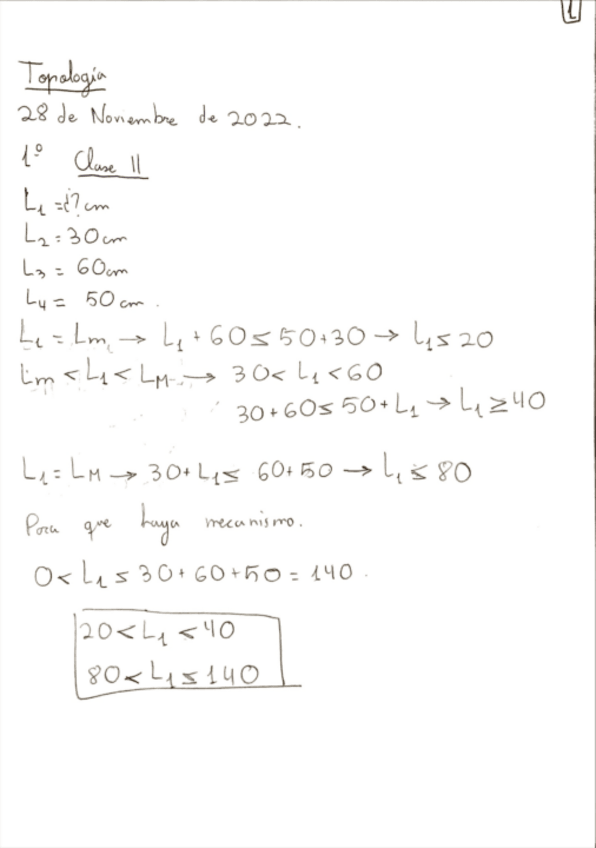 1
Topología
28 de Noviembre de 2022.
1º Clase II
L₁ = ¿? cm
L₂ = 30 cm
L₃ = 60 cm
L₄ = 50 cm.
L₁ = Lm → L₁ + 60 ≤ 50+30 → L₁ ≤ 20
Lm < L₁ < LM → 30 < L₁ < 60
30+60 ≤ 50+L₁ → L₁ ≥ 40
L₁ = LM → 30+L₁ ≤ 60+50 → L₁ ≤ 80
Para que haya mecanismo.
0 < L₁ ≤ 30+60+50 = 140.
20 < L₁ < 40
80 < L₁ ≤ 140